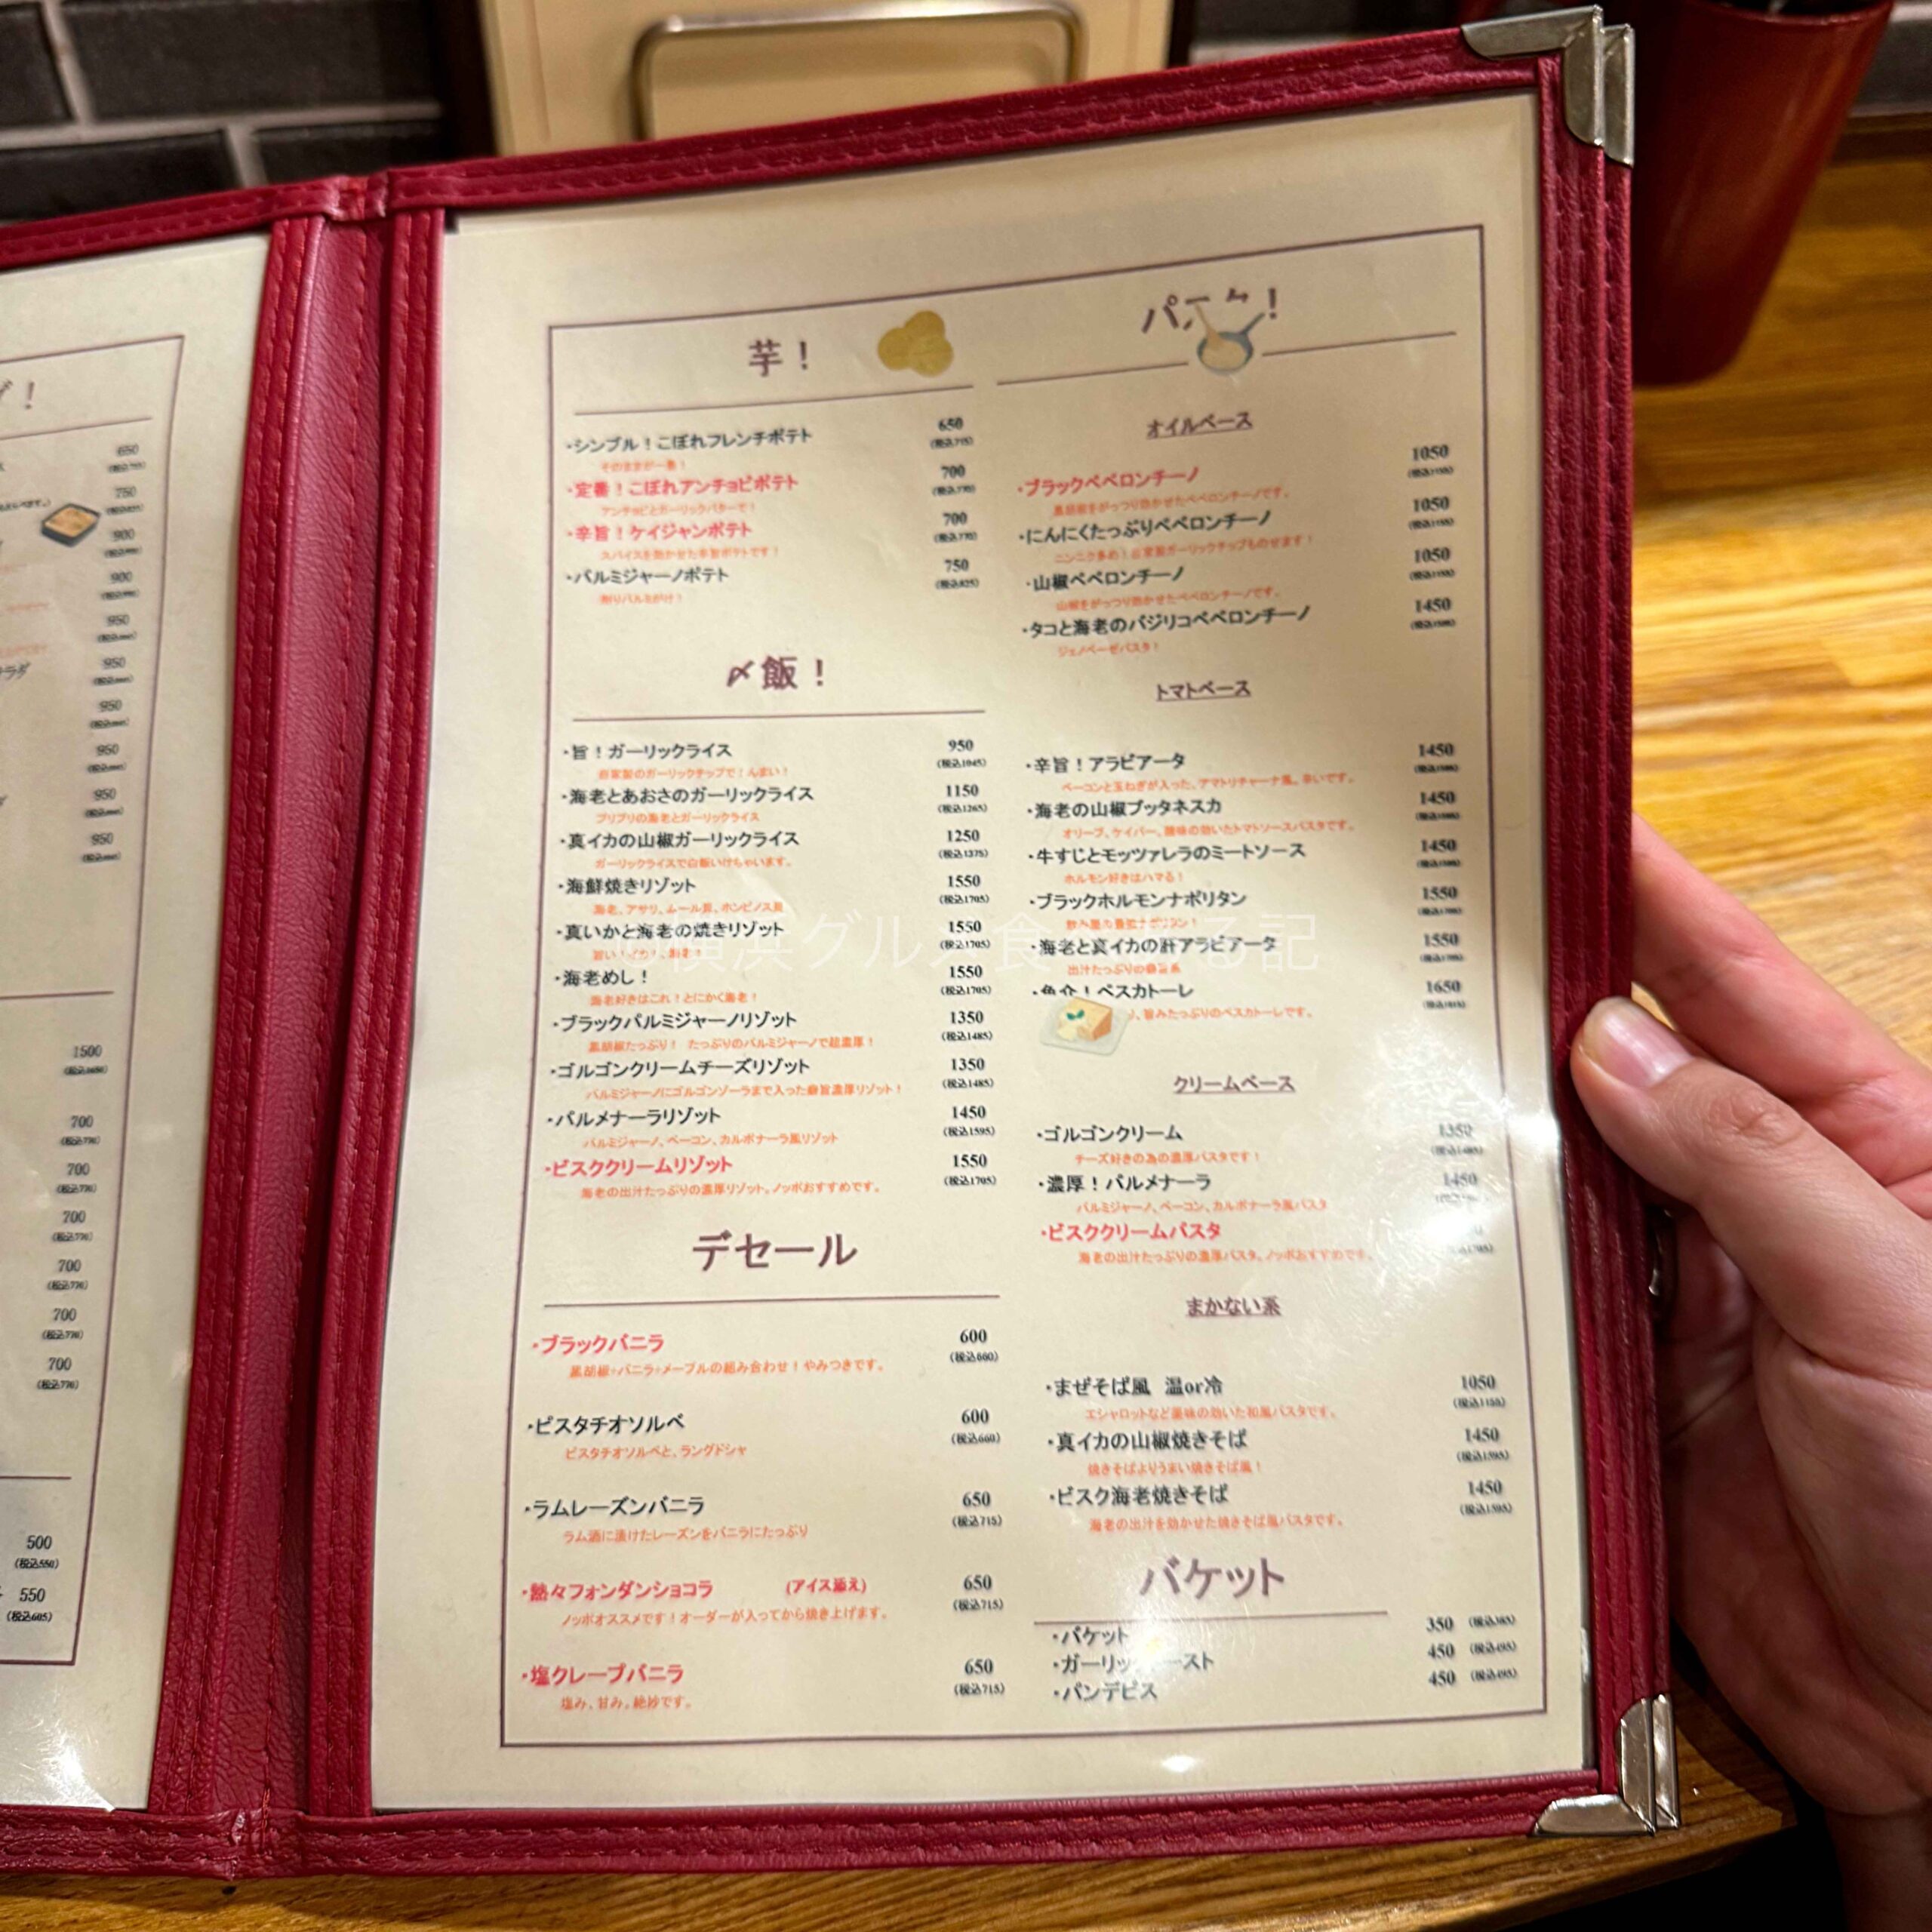 芋！
・シンブル！こぼれフレンチポテト 650
(税込715)
そのままが一番！
・定番！こぼれアンチョビポテト 700
(税込770)
アンチョビとガーリックバターで！
・辛旨！ケイジャンポテト 700
(税込770)
スパイスを効かせた辛旨ポテトです！
・パルミジャーノポテト 750
(税込825)
削りパルミがけ！
〆飯！
・旨！ガーリックライス 950
(税込1045)
自家製のガーリックチップで！んまい！
・海老とあおさのガーリックライス 1150
(税込1265)
プリプリの海老とガーリックライス
・真イカの山椒ガーリックライス 1250
(税込1375)
ガーリックライスで白飯いけちゃいます。
・海鮮焼きリゾット 1550
(税込1705)
海老、アサリ、ムール貝、ホンビノス貝
・真いかと海老の焼きリゾット 1550
(税込1705)
旨い！イカ！海老！
・海老めし！ 1550
(税込1705)
海老好きはこれ！とにかく海老！
・ブラックパルミジャーノリゾット 1350
(税込1485)
黒胡椒たっぷり！ たっぷりのパルミジャーノで超濃厚！
・ゴルゴンクリームチーズリゾット 1350
(税込1485)
パルミジャーノにゴルゴンゾーラまで入った癖旨濃厚リゾット！
・パルメナーラリゾット 1450
(税込1595)
パルミジャーノ、ベーコン、カルボナーラ風リゾット
・ビスククリームリゾット 1550
(税込1705)
海老の出汁たっぷりの濃厚リゾット。ノッポおすすめです。
デセール
・ブラックバニラ 600
(税込660)
黒胡椒+バニラ+メープルの組み合わせ！やみつきです。
・ピスタチオソルベ 600
(税込660)
ピスタチオソルベと、ラングドシャ
・ラムレーズンバニラ 650
(税込715)
ラム酒に漬けたレーズンをバニラにたっぷり
・熱々フォンダンショコラ (アイス添え) 650
(税込715)
ノッポオススメです！オーダーが入ってから焼き上げます。
・塩クレープバニラ 650
(税込715)
塩み、甘み、絶妙です。
オイルベース
・ブラックペペロンチーノ 1050
(税込1155)
黒胡椒をがっつり効かせたペペロンチーノです。
・にんにくたっぷりペペロンチーノ 1050
(税込1155)
ニンニク多め！自家製ガーリックチップものせます！
・山椒ペペロンチーノ 1050
(税込1155)
山椒をがっつり効かせたペペロンチーノです。
・タコと海老のバジリコペペロンチーノ 1450
(税込1595)
ジェノベーゼパスタ！
トマトベース
・辛旨！アラビアータ 1450
(税込1595)
ベーコンと玉ねぎが入った、アマトリチャーナ風。辛いです。
・海老の山椒プッタネスカ 1450
(税込1595)
オリーブ、ケイパー、酸味の効いたトマトソースパスタです。
・牛すじとモッツァレラのミートソース 1450
(税込1595)
ホルモン好きはハマる！
・ブラックホルモンナポリタン 1550
(税込1705)
飲み屋の最強ナポリタン！
・海老と真イカの肝アラビアータ 1550
(税込1705)
出汁たっぷりの
・魚介！ペスカトーレ 1650
(税込1815)
旨みたっぷりのペスカトーレです。
クリームベース
・ゴルゴンクリーム 1350
(税込1485)
チーズ好きの為の濃厚パスタです！
・濃厚！パルメナーラ 1450
パルミジャーノ、ベーコン、カルボナーラ風パスタ
・ビスククリームパスタ
海老の出汁たっぷりの濃厚パスタ。ノッポおすすめです。
まかない系
・まぜそば風 温or冷 1050
(税込1155)
エシャロットなど薬味の効いた和風パスタです。
・真イカの山椒焼きそば 1450
(税込1595)
焼きそばよりうまい焼きそば風！
・ビスク海老焼きそば 1450
(税込1595)
海老の出汁を効かせた焼きそば風パスタです。
バケット
・バケット 350 (税込385)
・ガーリックトースト 450 (税込495)
・パンデピス 450 (税込495)
650
750
900
900
950
950
950
950
950
950
1500
(税込1650)
700
(税込770)
700
(税込770)
700
(税込770)
700
(税込770)
700
(税込770)
700
(税込770)
500
(税込550)
550
(税込605)
横浜グルメ食